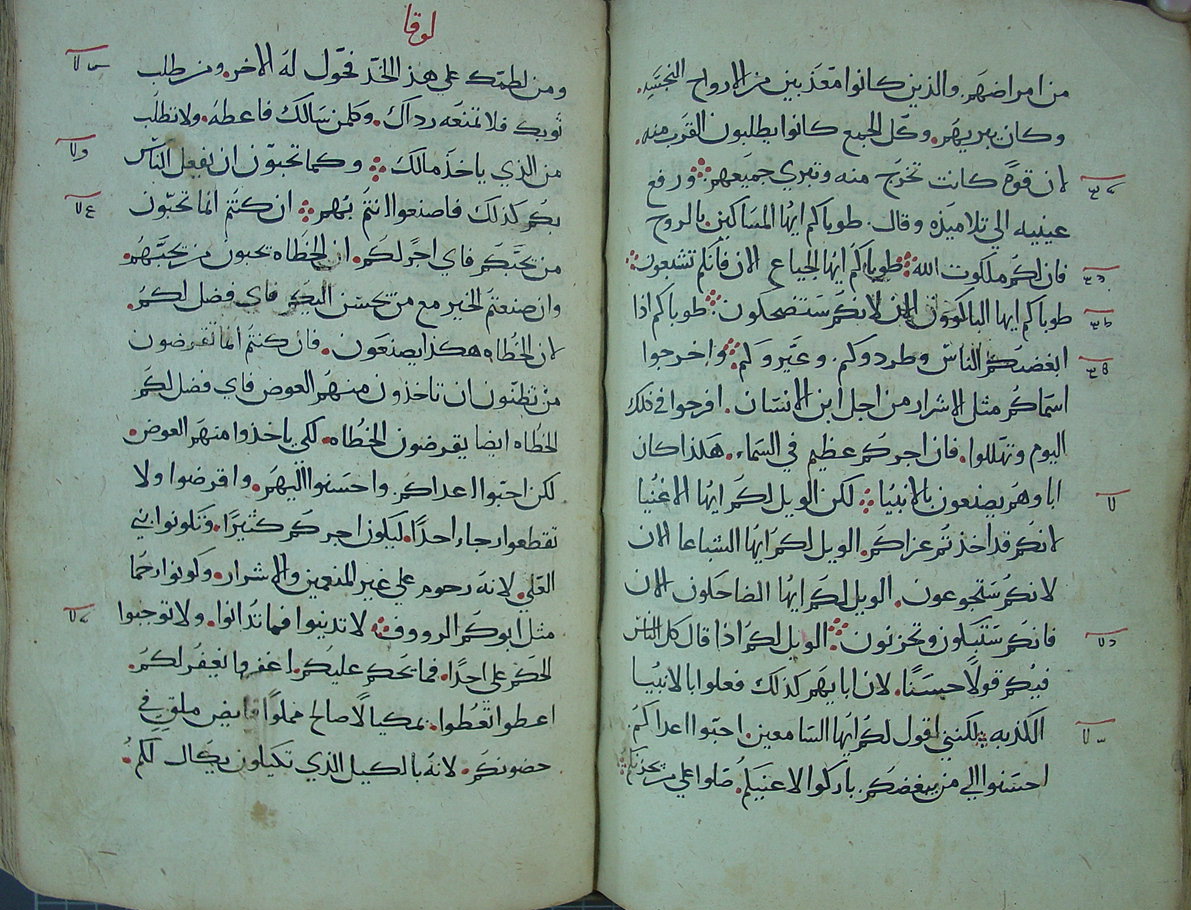 من امراضهم. والذين كانوا معذبين من الارواح النجسه.
وكان يبريهم. وكل الجمع كانوا يطلبون القرب منه.
لان قوة كانت تخرج منه وتبري جميعهم ورفع
عينيه الى تلاميذه وقال. طوباكم ايها المساكين بالروح
فان لكم ملكوت الله طوباكم ايها الجياع الان فانكم تشبعون
طوباكم ايها الباكوون الان لانكم ستضحكون. طوباكم اذا
ابغضتكم الناس وطردوكم. وعيروكم واخرجوا
اسماكم مثل الاشرار من اجل ابن الانسان. افرحوا في ذلك
اليوم وتهللوا. فان اجركم عظيم في السماء. هكذا كان
اباوهم يصنعون بالانبيا لكن الويل لكم ايها الاغنيا
لانكم قد اخذتم عزاكم. الويل لكم ايها الشباعا الان
لانكم ستجوعون. الويل لكم ايها الضاحكون الان
فانكم ستبكون وتحزنون الويل لكم اذا قال كل الناس
فيكم قولا حسنا. لان ابايهم كذلك فعلوا بالانبيا
الكذبه لكنني اقول لكم ايها السامعين. احبوا اعداكم.
احسنوا الي من يبغضكم. باركوا لاعنيكم. صلوا علي من يحزنكم
لوقا
ومن لطمك على هذ الخد فحول له الاخر. ومن طلب
ثوبك فلا تمنعه رداك. وكلمن سالك فاعطه. ولا تطلب
من الذي ياخذ مالك وكما تحبون ان يفعل الناس
بكم كذلك فاصنعوا انتم بهم ان كنتم انما تحبون
من يحبكم فاي اجر لكم. ان الخطاه يحبون من يحبهم.
وان صنعتم الخير مع من يحسن اليكم فاي فضل لكم.
لان الخطاه هكذا يصنعون. فان كنتم انما تقرضون
من تظنون ان تاخذون منهم العوض فاي فضل لكم
الخطاه ايضا يقرضون الخطاه. لكي ياخذوا منهم العوض.
لكن احبوا اعداكم. واحسنوا اليهم. واقرضوا ولا
تقطعوا رجاء احدا. ليكون اجركم كثيرا. وتكونوا بني
العلي. لانه رحوم علي غير المنعمين والاشرار. وكونوا رحما
مثل ابوكم الرووف لا تدينوا فما تدانوا. ولا توجبوا
الحكم على احدا. فما يحكم عليكم. اغفروا يغفر لكم.
اعطوا تعطوا. بمكيالا صالح مملوا فايض ملقي في
حضونكم. لانه بالكيل الذي تكيلون يكال لكم.